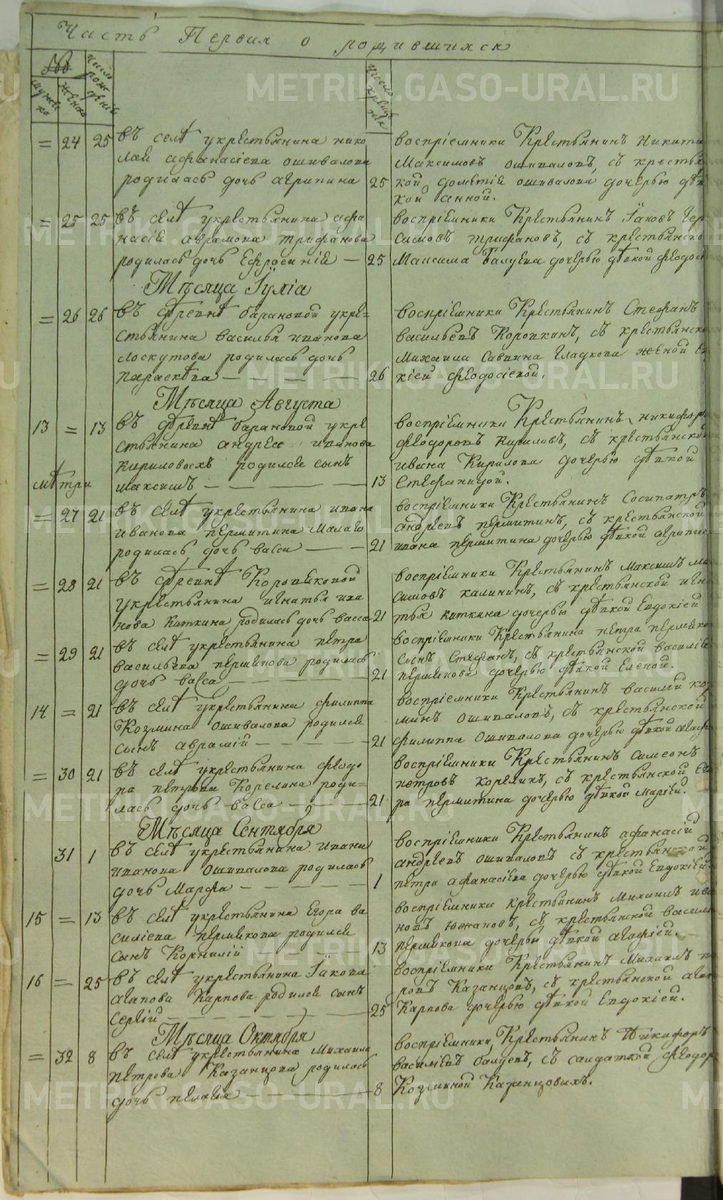 Часть Первая о родившихся
METRIK.GASO-URAL.RU
числο рождения
мужеска
женска
число крещения
= 24 25 въ селѣ укрестьянина нико
лая афанасіева ошивалова
родилась дочь агрипина
25
воспріемники Крестьянинъ Никита
Максимовъ ошиваловъ, съ крестья
кой дометія ошивалова дочерью дѣв
кой анной.
= 25 25 въ селѣ укрестьянина афа
насія аврамова трифанова
родилась дочь Ефросинія —
25
воспріемники Крестьянинъ Іаковъ Гер
симовъ трифановъ, съ крестьянско
Максима балуева дочерью дѣвкой феодос
Мѣсяца Іуліа
= 26 26 въ деревнѣ барановой укре-
стьянина василья иванова
лоскутова родилась дочь
параскева — — — —
26
воспріемники Крестьянинъ Стефанъ
васильевъ Коровкинъ, съ крестьянск
Михаила Саввина Гладкова женой
феодосіевой.
Мѣсяца Августа
13 = 13 въ деревнѣ барановой укре
стьянина андрея иванова
кириловыхъ родился сынъ
максимъ — — — —
13
воспріемники Крестьянинъ никифоръ
феодоровъ Кириловъ, съ крестьянской
ивана Кирилова дочерью дѣвкой
Стефанидой.
METRIK.GASO-URAL.RU
= 27 21 въ селѣ укрестьянина ивана
иванова пермитина Малаго
родилась дочь васса — —
21
воспріемники Крестьянинъ Сосипатръ
андреевъ пермитинъ, съ крестьянской
ивана пермитина дочерью дѣвкой
= 28 21 въ деревнѣ Коровяковой
укрестьянина игнатья ива
нова киткина родилась дочь васса
21
воспріемники Крестьянинъ Максимъ Мак
симовъ калининъ, съ крестьянской игна
тья киткина дочерью дѣвкой Евдокіей
= 29 21 въ селѣ укрестьянина петра
васильева пермякова родилась
дочь васса — — — —
21
воспріемники Крестьянина петра пермяко
сынъ Стефанъ, съ крестьянской василія
пермякова дочерью дѣвкой Еленой.
14 = 21 въ селѣ укрестьянина филиппа
Козмина Ошивалова родился
сынъ аврамій — — — —
21
воспріемники Крестьянинъ василій коз
минъ Ошиваловъ, съ крестьянской
филиппа Ошивалова дочерью дѣвкой
= 30 21 въ селѣ укрестьянина феодо
ра петрова Корелина роди-
лась дочь васса — — —
21
воспріемники Крестьянинъ Симеонъ
петровъ корелинъ, съ крестьянской
ра пермитина дочерью дѣвкой Маріей.
METRIK.GASO-URAL.RU
Мѣсяца Сентября
31 1 въ селѣ укрестьянина ивана
иванова Ошивалова родилась
дочь Марфа — — — —
1
воспріемники Крестьянинъ афанасій
андреевъ ошиваловъ съ крестьянской
петра афанасіева дочерью дѣвкой Евдокіей
15 = 13 въ селѣ укрестьянина Егора ва
силіева пермякова родился
сынъ Корнилій — — —
13
воспріемники крестьянинъ Михаилъ ива
новъ южаковъ, съ крестьянкой василья
пермякова дочерью дѣвкой агафіей.
16 = 25 въ селѣ укрестьянина Іакова
агапова Карпова родился сынъ
Сергій — — — —
25
воспріемники Крестьянинъ Михаилъ
ровъ Казанцовъ, съ крестьянской агапа
Карпова дочерью дѣвкой Евдокіей.
Мѣсяца Октября
= 32 8 въ селѣ укрестьянина Михаила
петрова Казанцова родилась
дочь пелагія — — — —
8
воспріемники, Крестьянинъ Никифоръ
василіевъ балуевъ, съ салдаткой феодор
Козминой Казанцовыхъ.
METRIK.GASO-URAL.RU